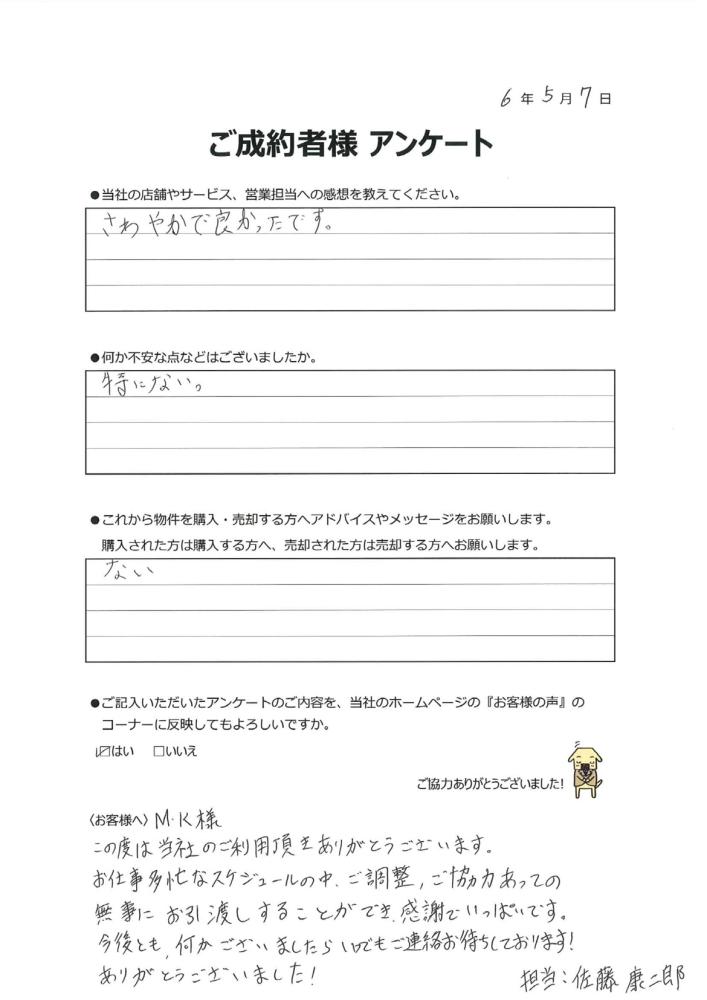 6年5月7日
ご成約者様 アンケート
●当社の店舗やサービス、営業担当への感想を教えてください。
さわやかで良かったです。
●何か不安な点などはございましたか。
特にない。
●これから物件を購入・売却する方へアドバイスやメッセージをお願いします。
購入された方は購入する方へ、売却された方は売却する方へお願いします。
ない
●ご記入いただいたアンケートのご内容を、当社のホームページの『お客様の声』の
コーナーに反映してもよろしいですか。
☑はい □いいえ
ご協力ありがとうございました!
〈お客様へ〉M・K様
この度は当社のご利用頂きありがとうございます。
お仕事多忙なスケジュールの中、ご調整、ご協力あっての
無事にお引渡しすることができ、感謝でいっぱいです。
今後とも、何かございましたらいつでもご連絡お待ちしております!
ありがとうございました!
担当:佐藤康二郎